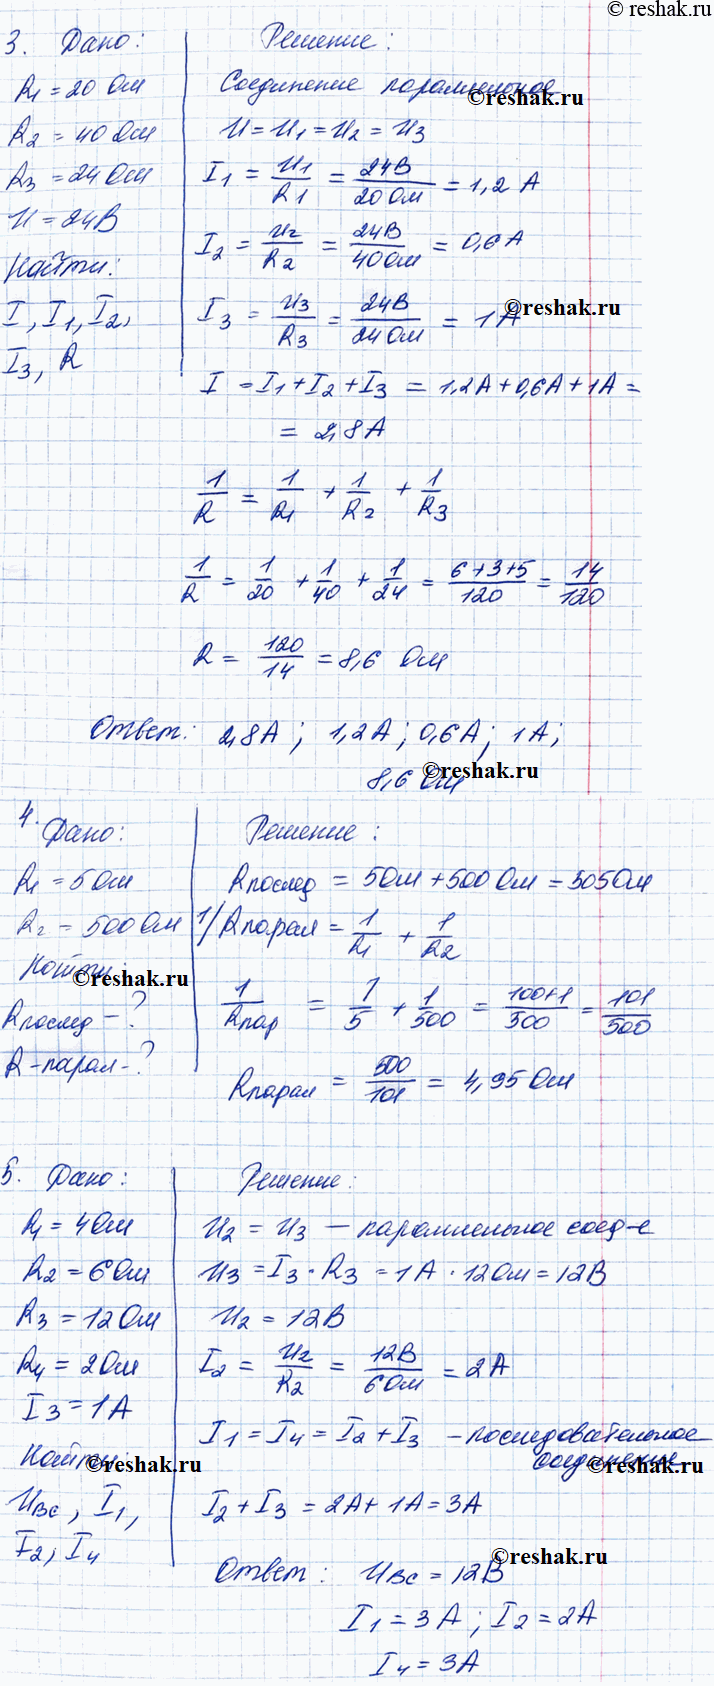 © reshak.ru
3. Дано:
R1 = 20 Ом
R2 = 40 Ом
R3 = 24 Ом
U = 24В
Найти:
I, I1, I2,
I3, R
Решение:
Соединение параллельное
©reshak.ru
U = U1 = U2 = U3
I1 = U1/R1 = 24В/20 Ом = 1,2 А
I2 = U2/R2 = 24В/40 Ом = 0,6 А
I3 = U3/R3 = 24В/24 Ом = 1 А
©reshak.ru
I = I1 + I2 + I3 = 1,2А + 0,6А + 1А =
= 2,8А
1/R = 1/R1 + 1/R2 + 1/R3
1/R = 1/20 + 1/40 + 1/24 = (6+3+5)/120 = 14/120
R = 120/14 = 8,6 Ом
Ответ: 2,8А; 1,2А; 0,6А; 1А;
8,6 Ом
©reshak.ru
4. Дано:
R1 = 5 Ом
R2 = 500 Ом
Найти:
©reshak.ru
Rпослед - ?
R-парал - ?
Решение:
Rпослед = 5 Ом + 500 Ом = 505 Ом
1/Rпарал = 1/R1 + 1/R2
1/Rпар = 1/5 + 1/500 = (100+1)/500 = 101/500
Rпарал = 500/101 = 4,95 Ом
5. Дано:
R1 = 4 Ом
R2 = 6 Ом
R3 = 12 Ом
R4 = 2 Ом
I3 = 1А
Найти:
©reshak.ru
UBC, I1,
I2, I4
Решение:
U2 = U3 — параллельное соед-е
U3 = I3 · R3 = 1А · 12 Ом = 12В
U2 = 12В
I2 = U2/R2 = 12В/6 Ом = 2А
I1 = I4 = I2 + I3 - последовательное
соединение
©reshak.ru
I2 + I3 = 2А + 1А = 3А
Ответ: UBC = 12В
©reshak.ru
I1 = 3А; I2 = 2А
I4 = 3А